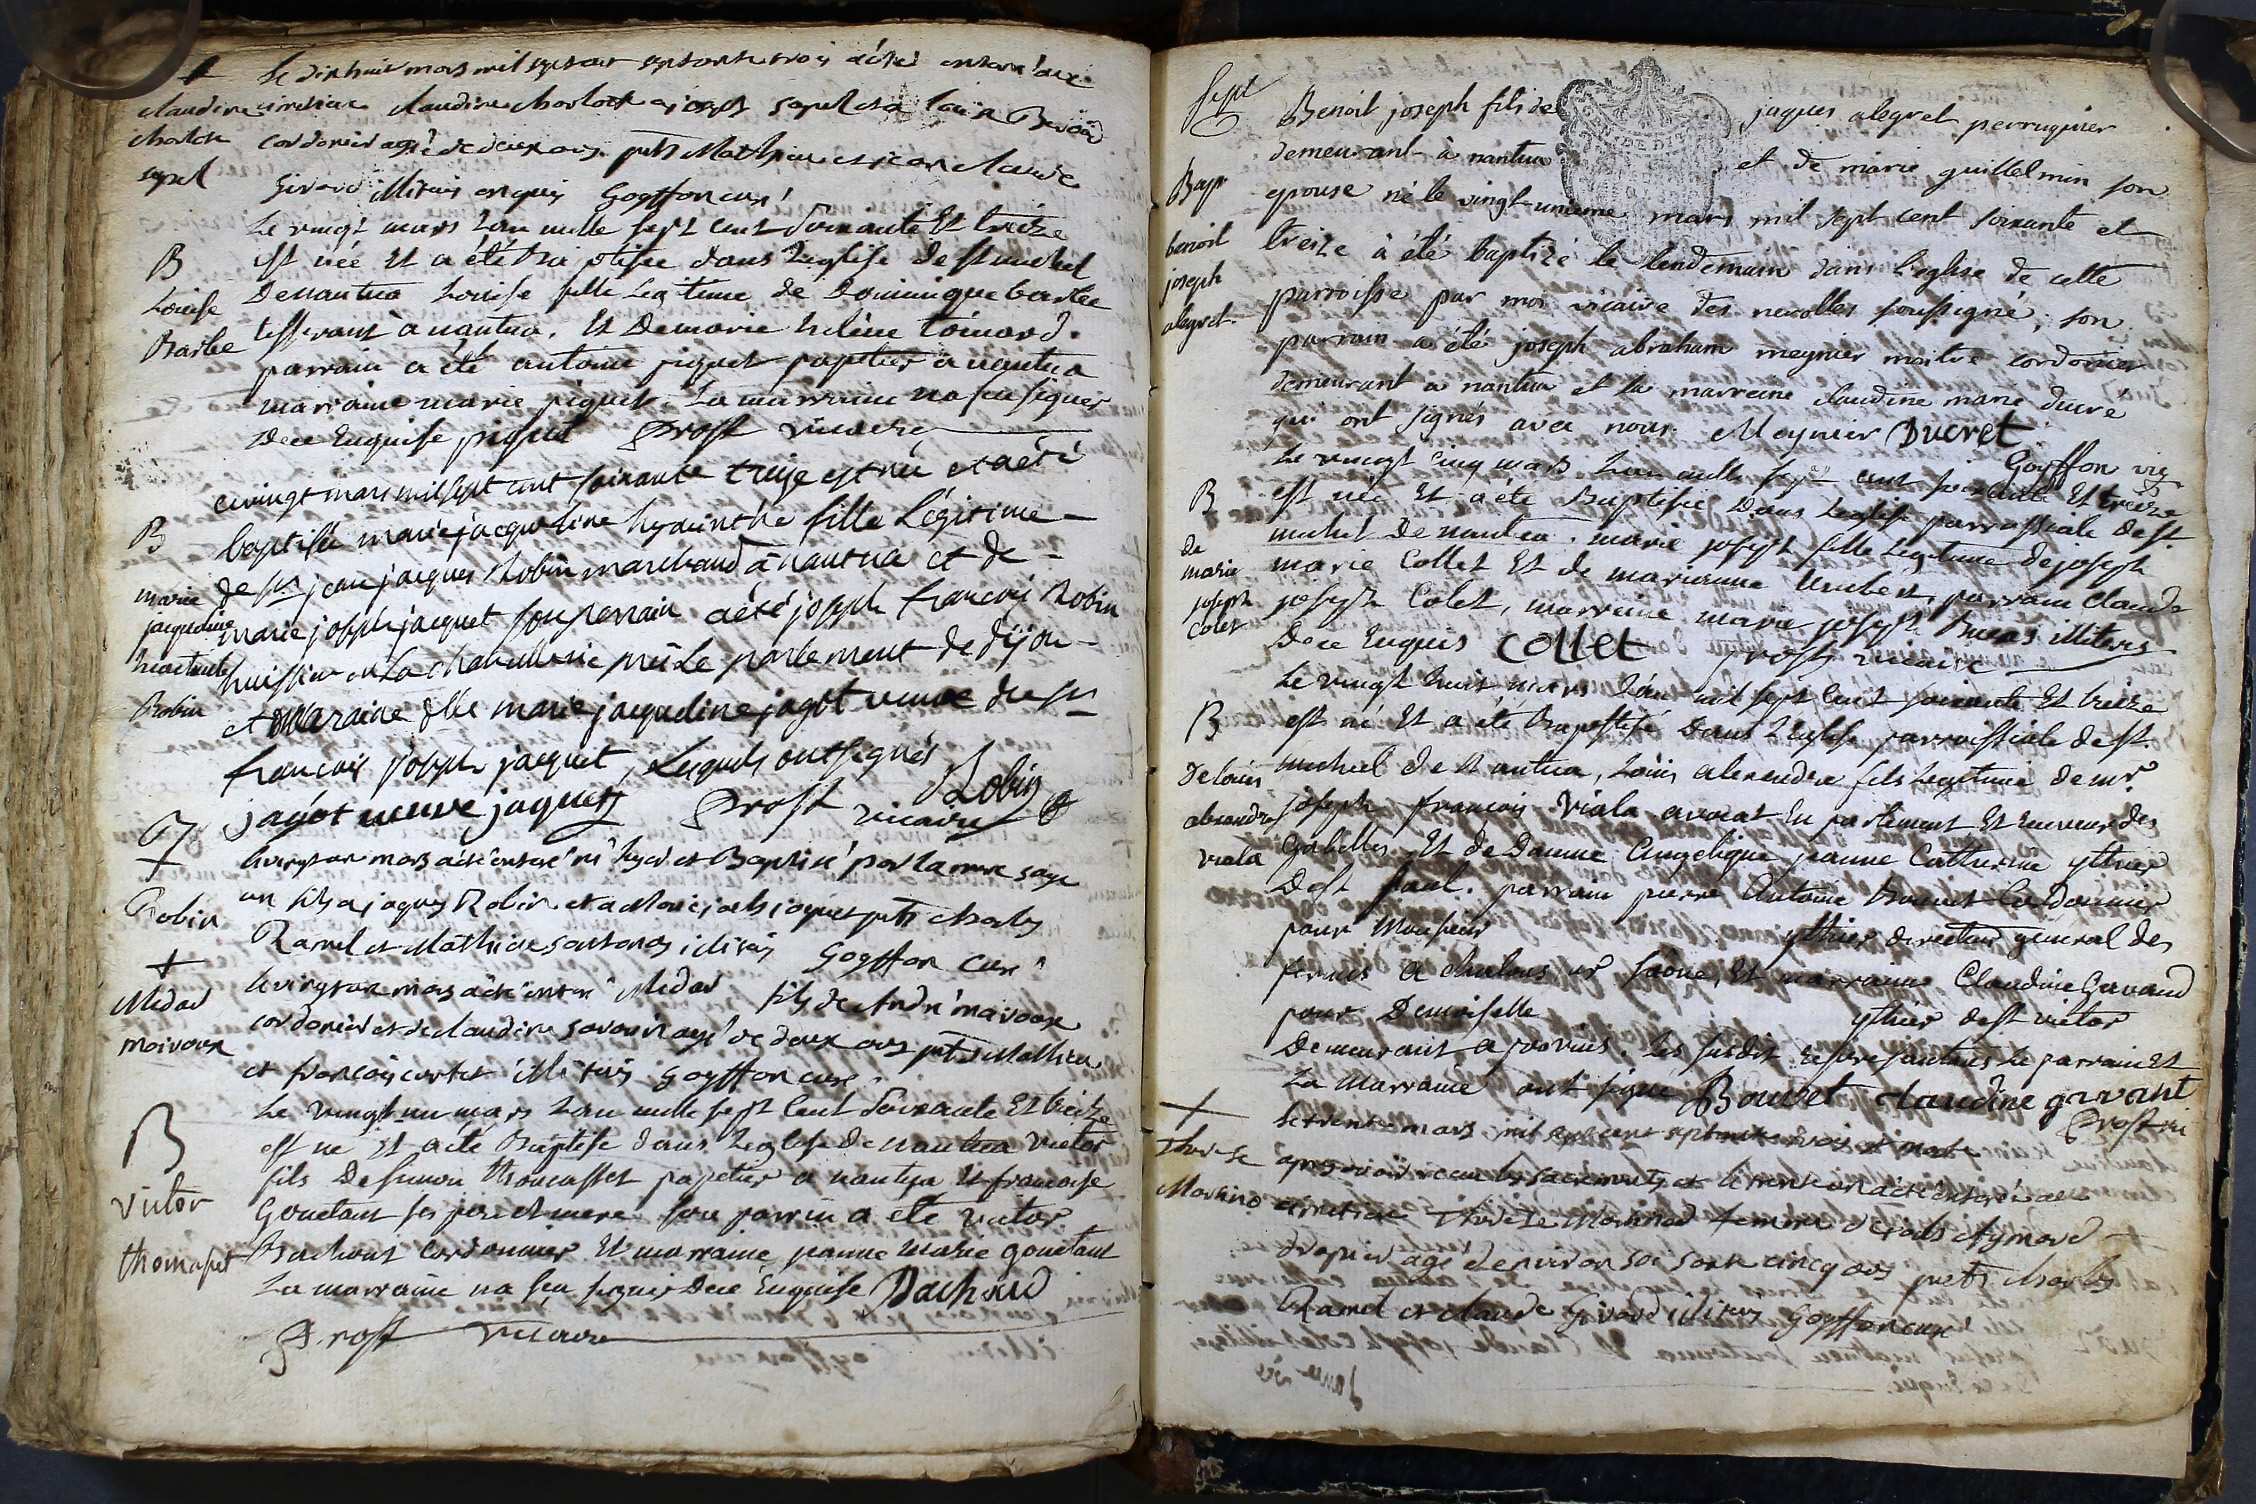 Le dix huit mars mil sept cent septante trois a été enterré au
claudine cimetiere claudine
charlote
sapel cordonier agé de deux ans pnts Mathieu et jean claude
Girard illiterés enquis Goyffon curé
Le vingt mars l'an mille sept cent soixante Et treize
B est née Et a été baptisée dans l'eglise de st michel
Louise De nantua Louise fille Legitime de Dominique barbe
Barbe tisserant à nantua. Et de marie helene
parrain a été antoine piquet papetier a nantua
marraine marie piquet. La marraine na seu signer
De ce Enquise piquet Prost vicaire
ce vingt mars mil sept cent soixante treize est née et a été
B baptisée marie jacqueline hyacinthe fille Légitime
marie de sr jean jacques Robin marchand à nantua et de
jacqueline marie joseph jacquet son parrain a été joseph francois Robin
hiacinte huissier en La chancellerie près Le parlement de dijon
Robin et maraine dlle marie jacqueline jagot veuve du sr
francois joseph jacquet, Lesquels ont signés
jagot veuve jaquet Prost vicaire Robin
Le vingt un mars a été enterré né hyer et Baptisé par la mere sage
Robin un fils a jaques Robin et a Marie jaquet pnts charles
Ramel et Mathieu illiterés Goyffon curé
+ Le vingt un mars a été enterré Medar fils de André maivoux
Medar cordonier et de claudine agé de deux ans pnts Mathieu
Moivoux et francois illiterés Goyffon curé
Le vingt un mars L'an mille sept Cent Soixante Et treize
B est né Et a été Baptisé dans l'eglise de nantua victor
Victor fils De simon papetier a nantua Et francoise
Gouetant ses pere et mere son parrain a été victor
thomasset Bachoud Cordonnier Et marraine jeanne marie gouetant
La marraine na seu signer De ce Enquise Bachoud
Prost vicaire
sept
Benoit joseph fils de jaques alegret perruquier
demeurant à nantua et de marie guillelmin son
Bap epouse né le vingt-unieme mars mil sept cent soixante et
benoit treize à été baptizé le lendemain dans l'eglise de cette
joseph parroisse par moi vicaire des nerolles soussigné, son
alegret parrain a été joseph abraham meynier maitre cordonier
demeurant à nantua et la marraine claudine marie ducré
qui ont signés avec nous. Meynier DUCRET
Goyffon vic
Le vingt cinq mars L'an mille sept cent soixante Et treize
B est née Et a été Baptisée Dans l'eglise parroissiale de st
de michel De nantua. marie joseph fille Legitime de joseph
marie marie Collet Et de marianne humbert, parrain claude
joseph joseph Colet, marraine marie joseph illiteres
Colet De ce Enquis COLLET Prost vicaire
Le vingt huit mars l'an mil sept Cent soixante Et treize
B est né Et a été Baptisé Dans l'Eglise parroissiale de st
De louis michel de Nantua, Louis alexandre fils Legitime de mr
alexandre joseph francois Viala avocat En parlement Et receveur des
viala Gabelles Et de Damme Angelique jeanne Catherine ythier
De st paul. parrain pierre Antoine Bouvet Cordonnier
pour Monsieur ythier directeur general des
fermes a chalons sr saône, Et marraine Claudine Gavand
pour Demoiselle ythier de st victor
Demeurant a provins. Les susdit representans le parrain Et
La marraine ont signé Bouvet claudine gavant
Prost vi
+ Le trente mars mil sept cent septante trois est morte
Therese apres avoir receu les sacrements et le trente un a été enterrée au
cimetiere Therese femme de Aymard
drapier agée d'environ soisante cinq ans pnts charles
Ramel et claude Girard illiteres Goyffon curé